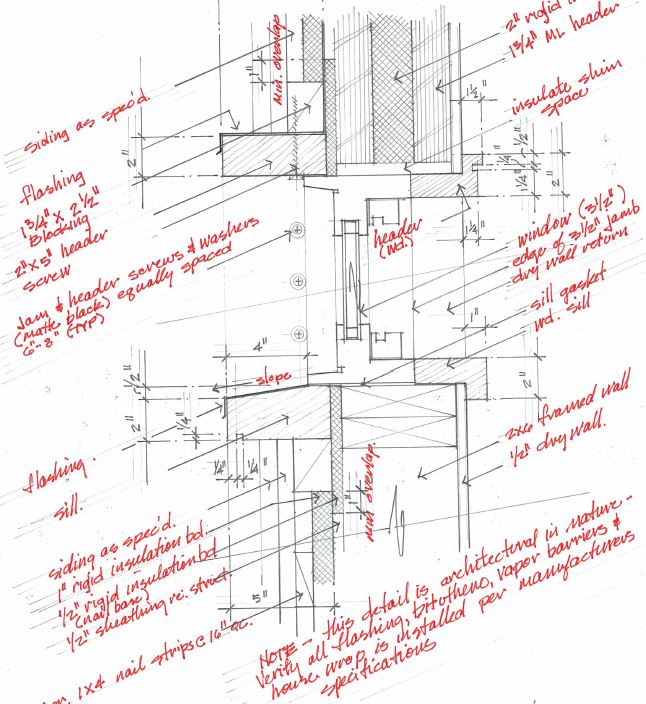 2" rigid
1 3/4" ML header
Min. overlap
1"
1 1/2"
siding as spec'd.
insulate shim
space
2"
1/2"
1/4"
1 1/4"
2"
flashing
1 3/4" x 2 1/2"
Blocking
2" x 5" header
screw
Jam & header screws & washers
(matte black) equally spaced
6"-8" (TYP)
header
(wd.)
1/4"
window (3 1/2")
edge of 3 1/2" Jamb
dry wall return
sill gasket
wd. sill
1"
4"
slope
1/2"
2"
1/4"
2"
2x6 framed wall
1/2" dry wall.
flashing.
sill.
1/4"
1/4"
1"
min overlap.
siding as spec'd.
1" rigid insulation bd.
1/2" rigid insulation bd
(nail base)
1/2" sheathing re: struct.
5"
1x4 nail strips @ 16" oc.
NOTE - this detail is architectural in nature -
Verify all flashing, bituthene, vapor barriers &
house wrap is installed per manufacturers
specifications